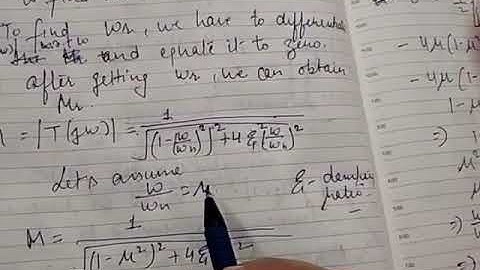 To find ωr, we have to differentiate
and equate it to zero.
after getting ωr, we can obtain
Mr.
M = |T(jω)| = 1 / √((1-(ω/ωn)²)² + 4ξ²(ω/ωn)²)
Let's assume
ω/ωn = μ
ξ - damping
ratio
M = 1 / √((1-μ²)² + 4ξ ²
- 4μ(1-μ
- 4μ(1
1-μ
=) 1
μ²
=)